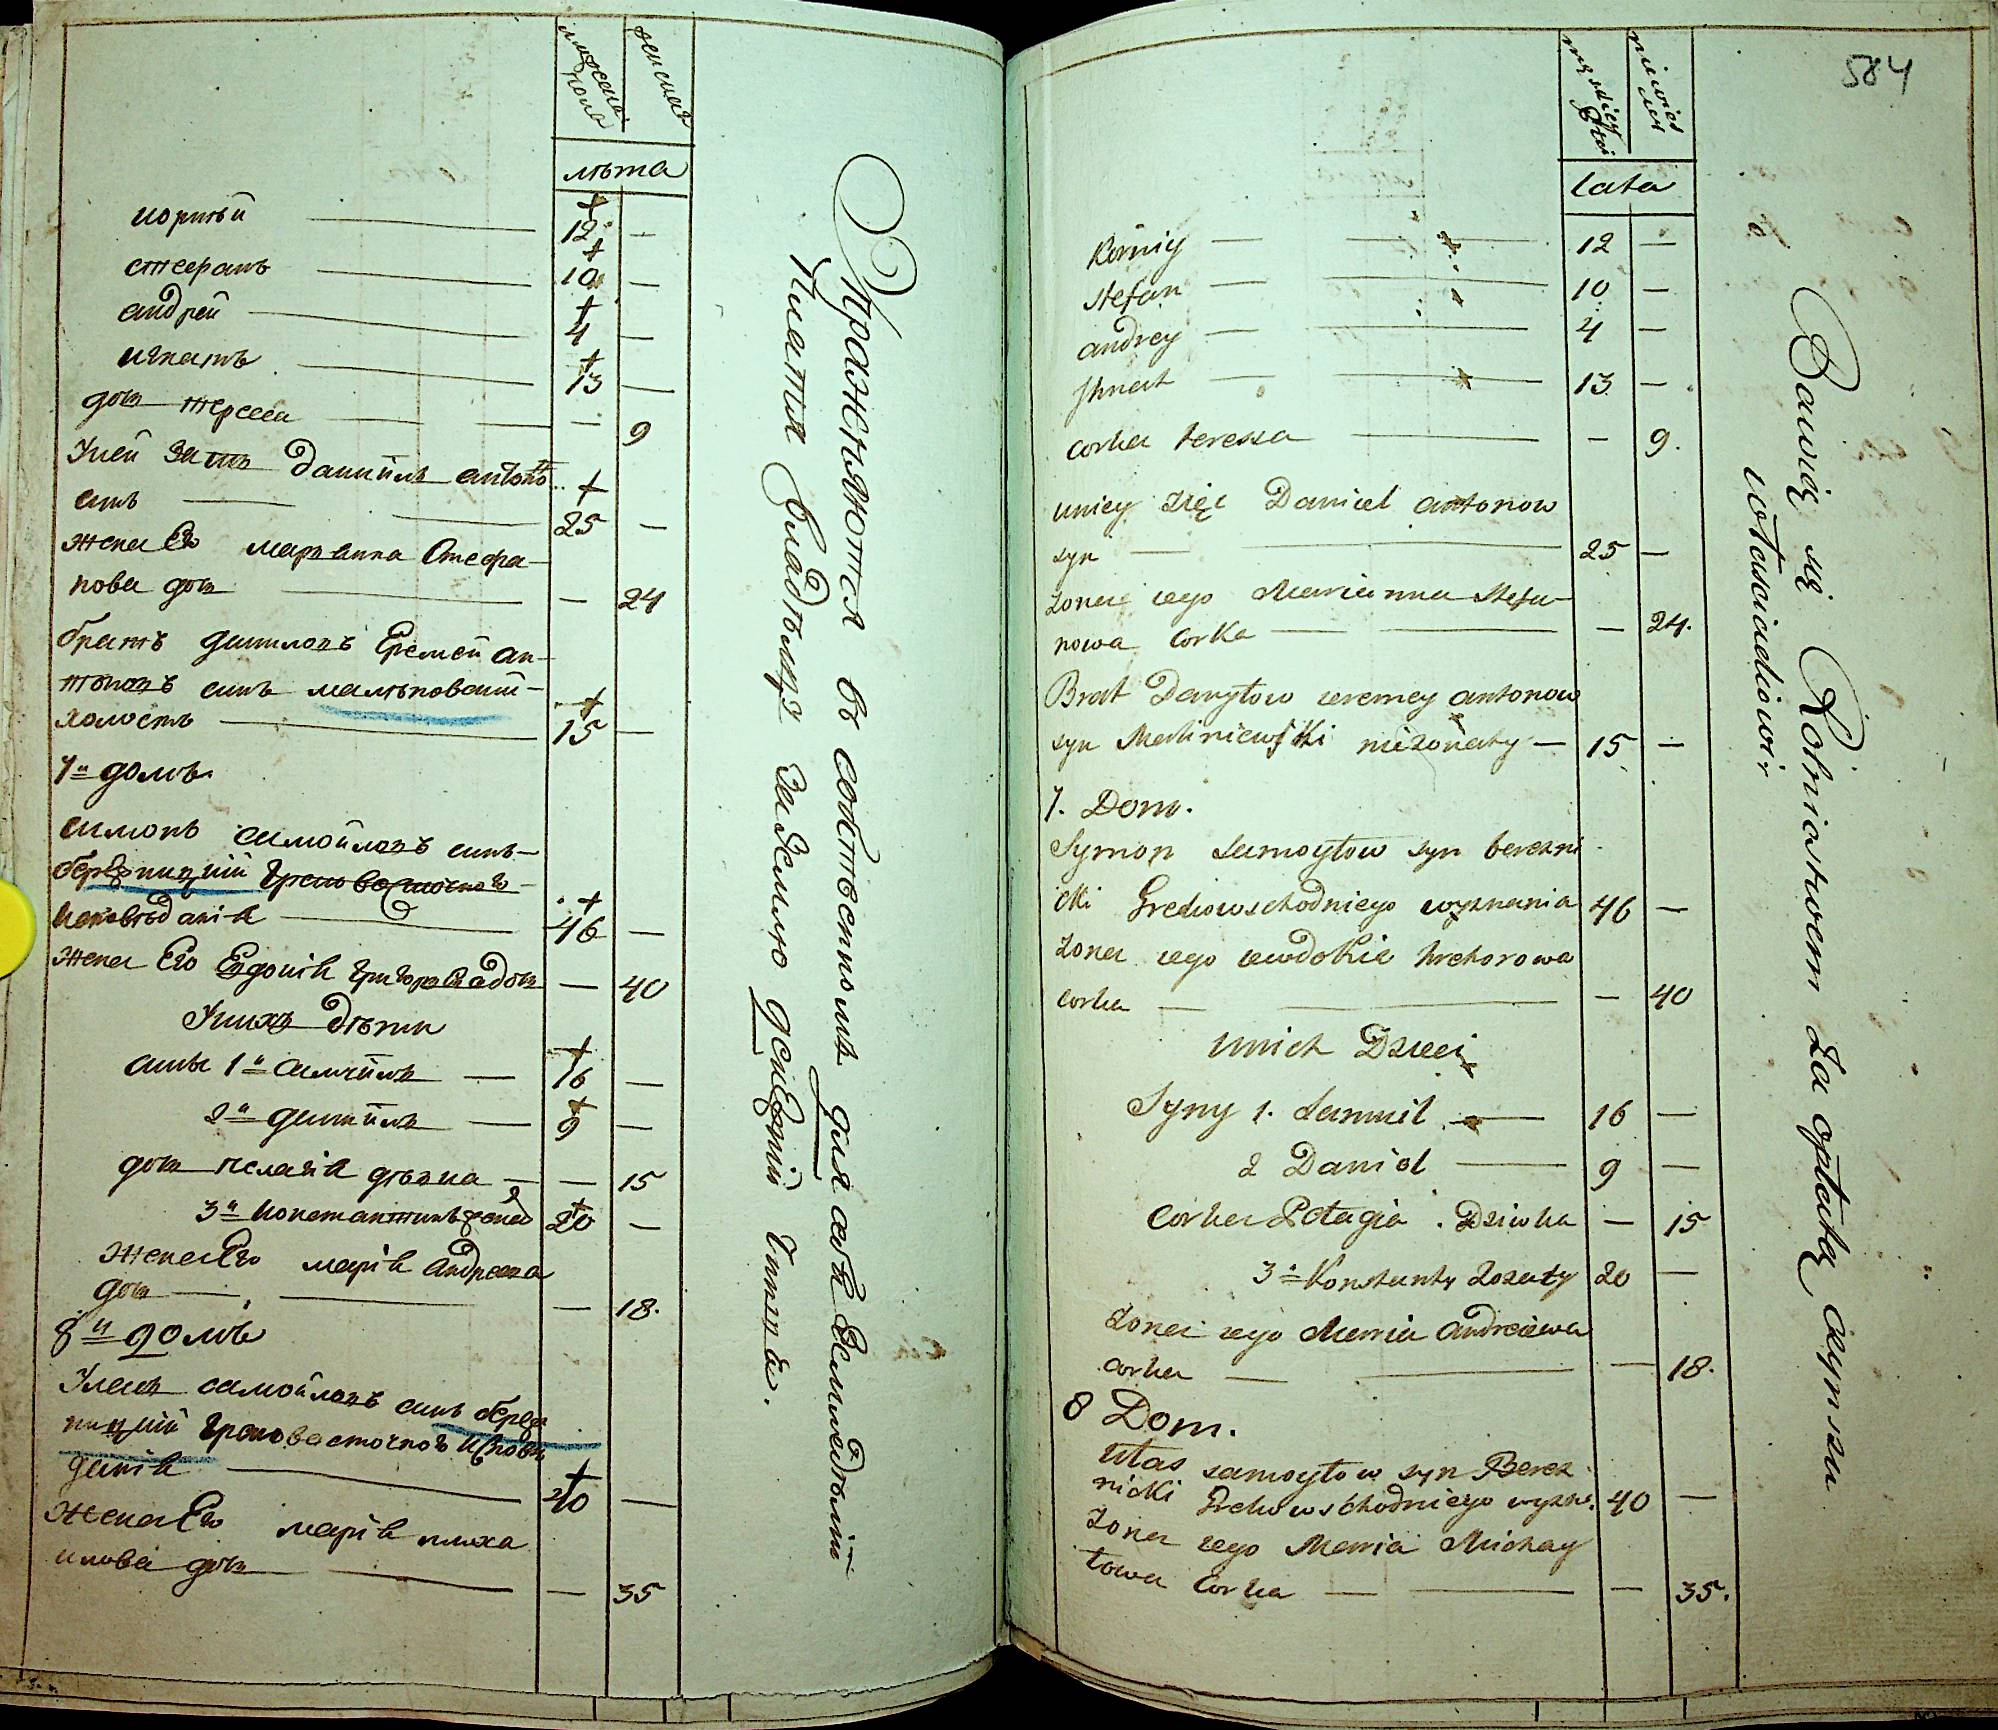 мужска
пола
женска
лѣта
корнѣй — 12 —
стефанъ — 10 —
андрей — 4 —
игнатъ — 13 —
доч тереса — — 9
У ней зять данiилъ антоно
синъ — 25 —
жена Его марианна Стефа-
нова доч — — 24
братъ даниловъ Еремей ан-
тоновъ синъ малѣновский-
холостъ — 15 —
7й домъ
симонъ самойловъ синъ-
березницкiй Грековосточного-
исповѣданiя — 46 —
жена Его Евдокiя григорова доч — 40
У нихъ дѣти
сины 1й самуилъ — 16 —
2й данiилъ — 9 —
доч пелагiя дѣвка — — 15
3й константинъ женат 20 —
жена Его марiя андреева
доч — — 18.
8й домъ
Улас самойловъ синъ берез
ницкiй Грековосточного испове
данiя — 40 —
жена Его марiя миха
илова доч — — 35
Упражнѣяются въ собственномъ для себя Земледѣлiи
Платя Владѣльцу за Землю денежный Чиншъ.
584
lata
Korniy — 12 —
Stefan — 10 —
andrey — 4 —
Jhnat — 13 —
corka teressa — — 9.
uniey zięć Daniel antonow
syn — 25 —
żona iego Marianna Stefa-
nowa corka — — 24.
Brat Danyłow ieremey antonow
syn Maliniewski nieżonaty — 15 —
7. Dom.
Symon samoyłow syn berezni
cki Grekowschodniego wyznania 46 —
żona iego iewdokia hrehorowa
corka — — 40
unich Dzieci
Syny 1. Samuil — 16 —
2 Daniel — 9 —
Corka Pelagia. Dziwka — 15
3. Konstanty żonaty 20 —
żona iego Maria andreiewa
corka — — 18.
8 Dom.
Ułas samoyłow syn Berez
nicki Grekowschodniego wyzn. 40 —
żona iego Maria Michay
łowa Corka — — 35.
Bawią się Rolniostwem za opłatą czynszu
włascicielowi